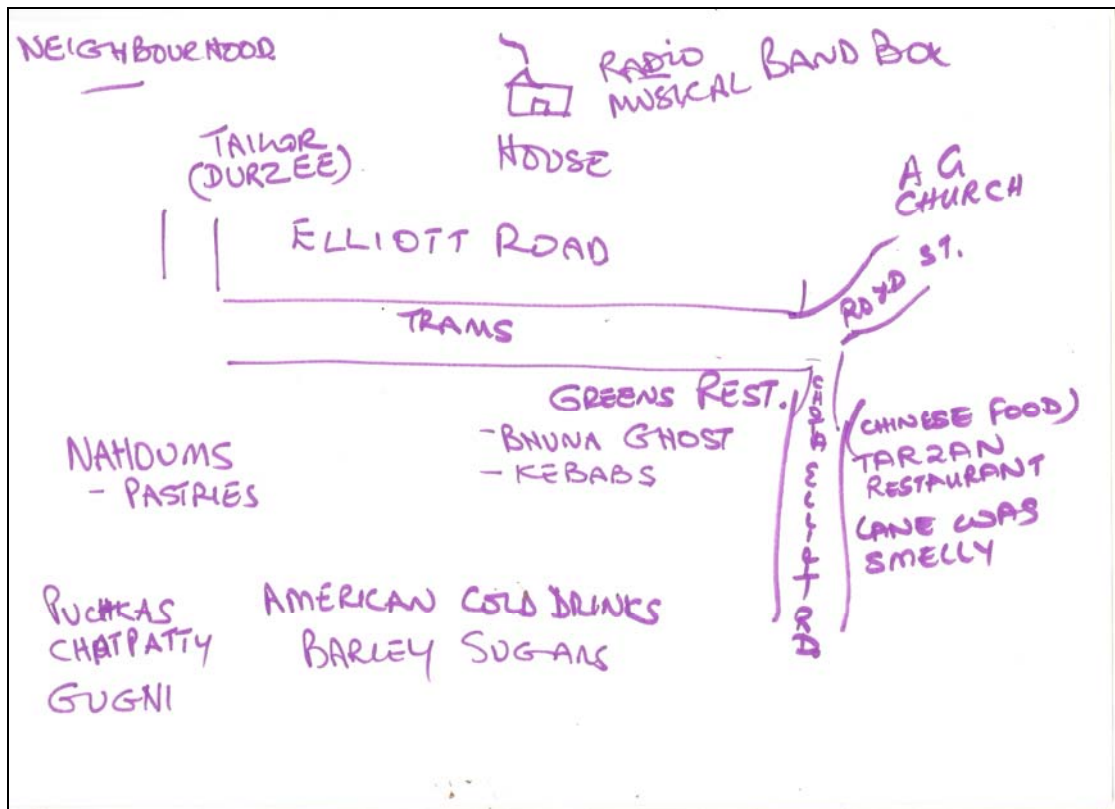 NEIGHBOURHOOD
RADIO
MUSICAL BAND BOX
HOUSE
TAILOR
(DURZEE)
A G
CHURCH
ELLIOTT ROAD
ROYD ST.
TRAMS
GREENS REST.
- BHUNA GHOST
- KEBABS
CHOTA ELLIOTT RD
(CHINESE FOOD)
TARZAN
RESTAURANT
LANE WAS
SMELLY
NAHOUMS
- PASTRIES
PUCHKAS
CHATPATTY
GUGNI
AMERICAN COLD DRINKS
BARLEY SUGARS